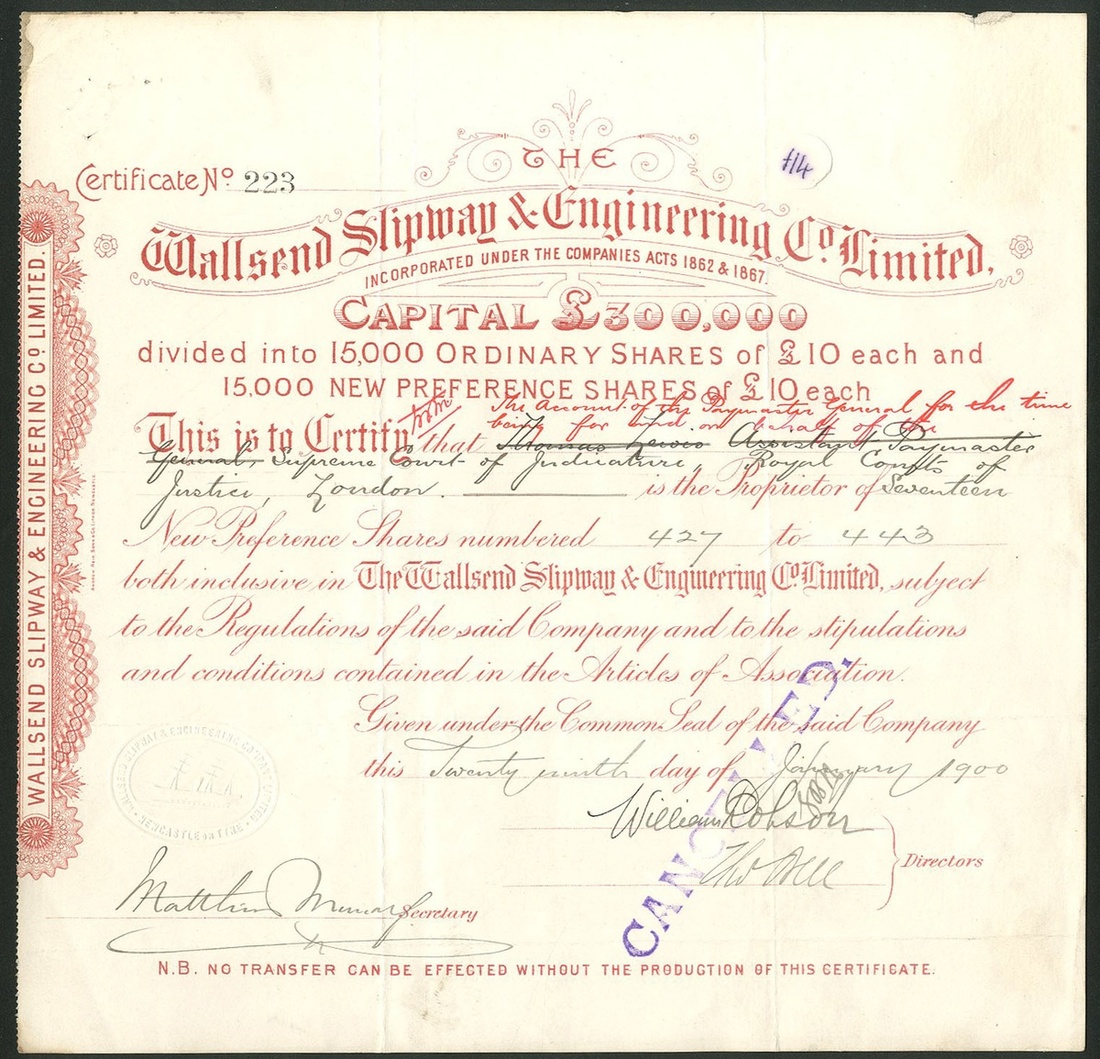 £14
Certificate No. 223
THE
Wallsend Slipway & Engineering Co. Limited,
INCORPORATED UNDER THE COMPANIES ACTS 1862 & 1867.
CAPITAL £300,000
divided into 15,000 ORDINARY SHARES of £10 each and
15,000 NEW PREFERENCE SHARES of £10 each
The Account of the Paymaster General for the time
being for and on behalf of the
This is to Certify that Thomas Lewis Assistant Paymaster
General, Supreme Court of Judicature, Royal Courts of
Justice, London. is the Proprietor of Seventeen
New Preference Shares numbered 427 to 443
both inclusive in The Wallsend Slipway & Engineering Co. Limited, subject
to the Regulations of the said Company and to the stipulations
and conditions contained in the Articles of Association.
Given under the Common Seal of the said Company
this Twenty ninth day of January 1900
William Robson
Directors
Matthew Murray Secretary
CANCELLED.
N.B. NO TRANSFER CAN BE EFFECTED WITHOUT THE PRODUCTION OF THIS CERTIFICATE.
WALLSEND SLIPWAY & ENGINEERING CO. LIMITED.
WALLSEND SLIPWAY & ENGINEERING COMPANY LIMITED
NEWCASTLE ON TYNE